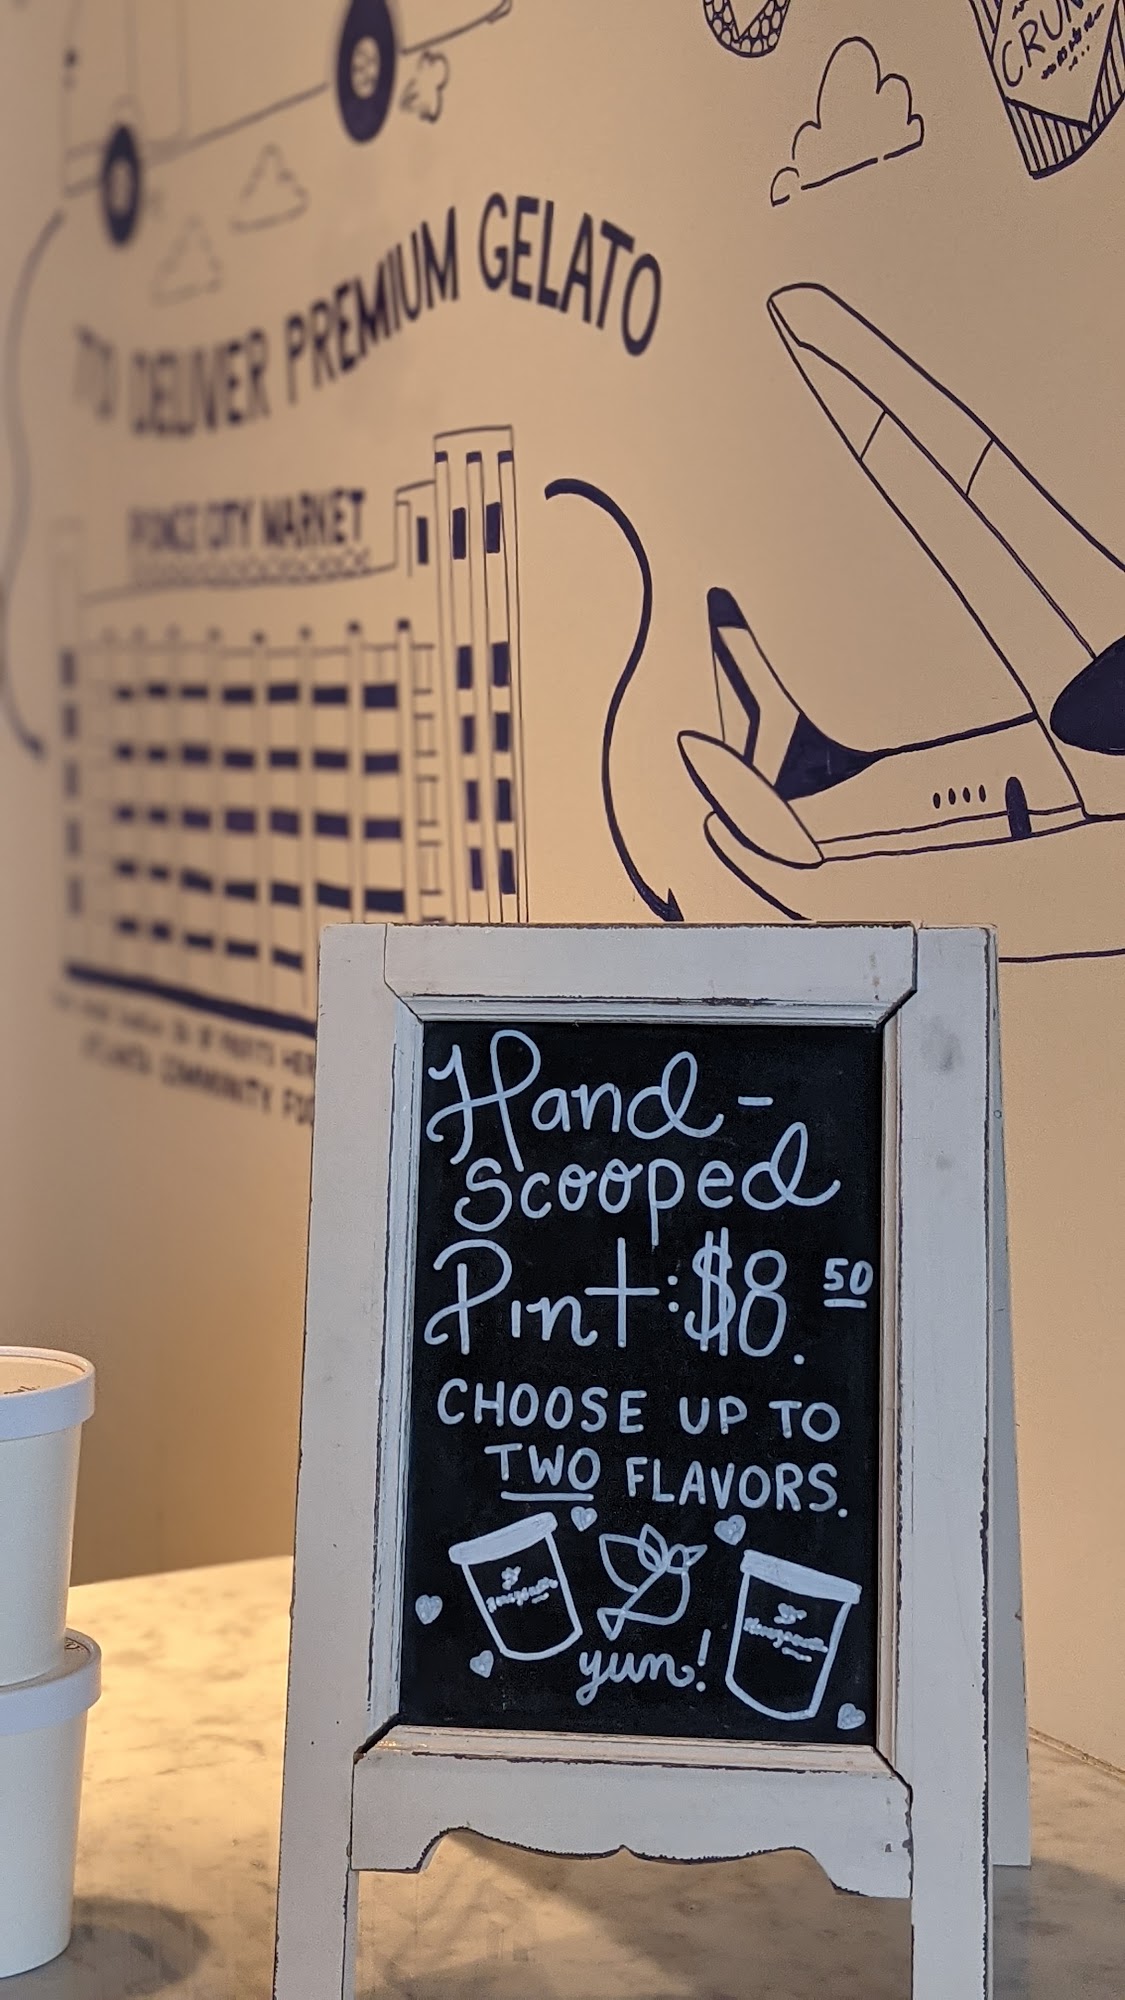 CRUN
TO DELIVER PREMIUM GELATO
PONCE CITY MARKET
ATLANTA COMMUNITY FOO
Hand-
scooped
Pint: $8.50
CHOOSE UP TO
TWO FLAVORS.
yum!